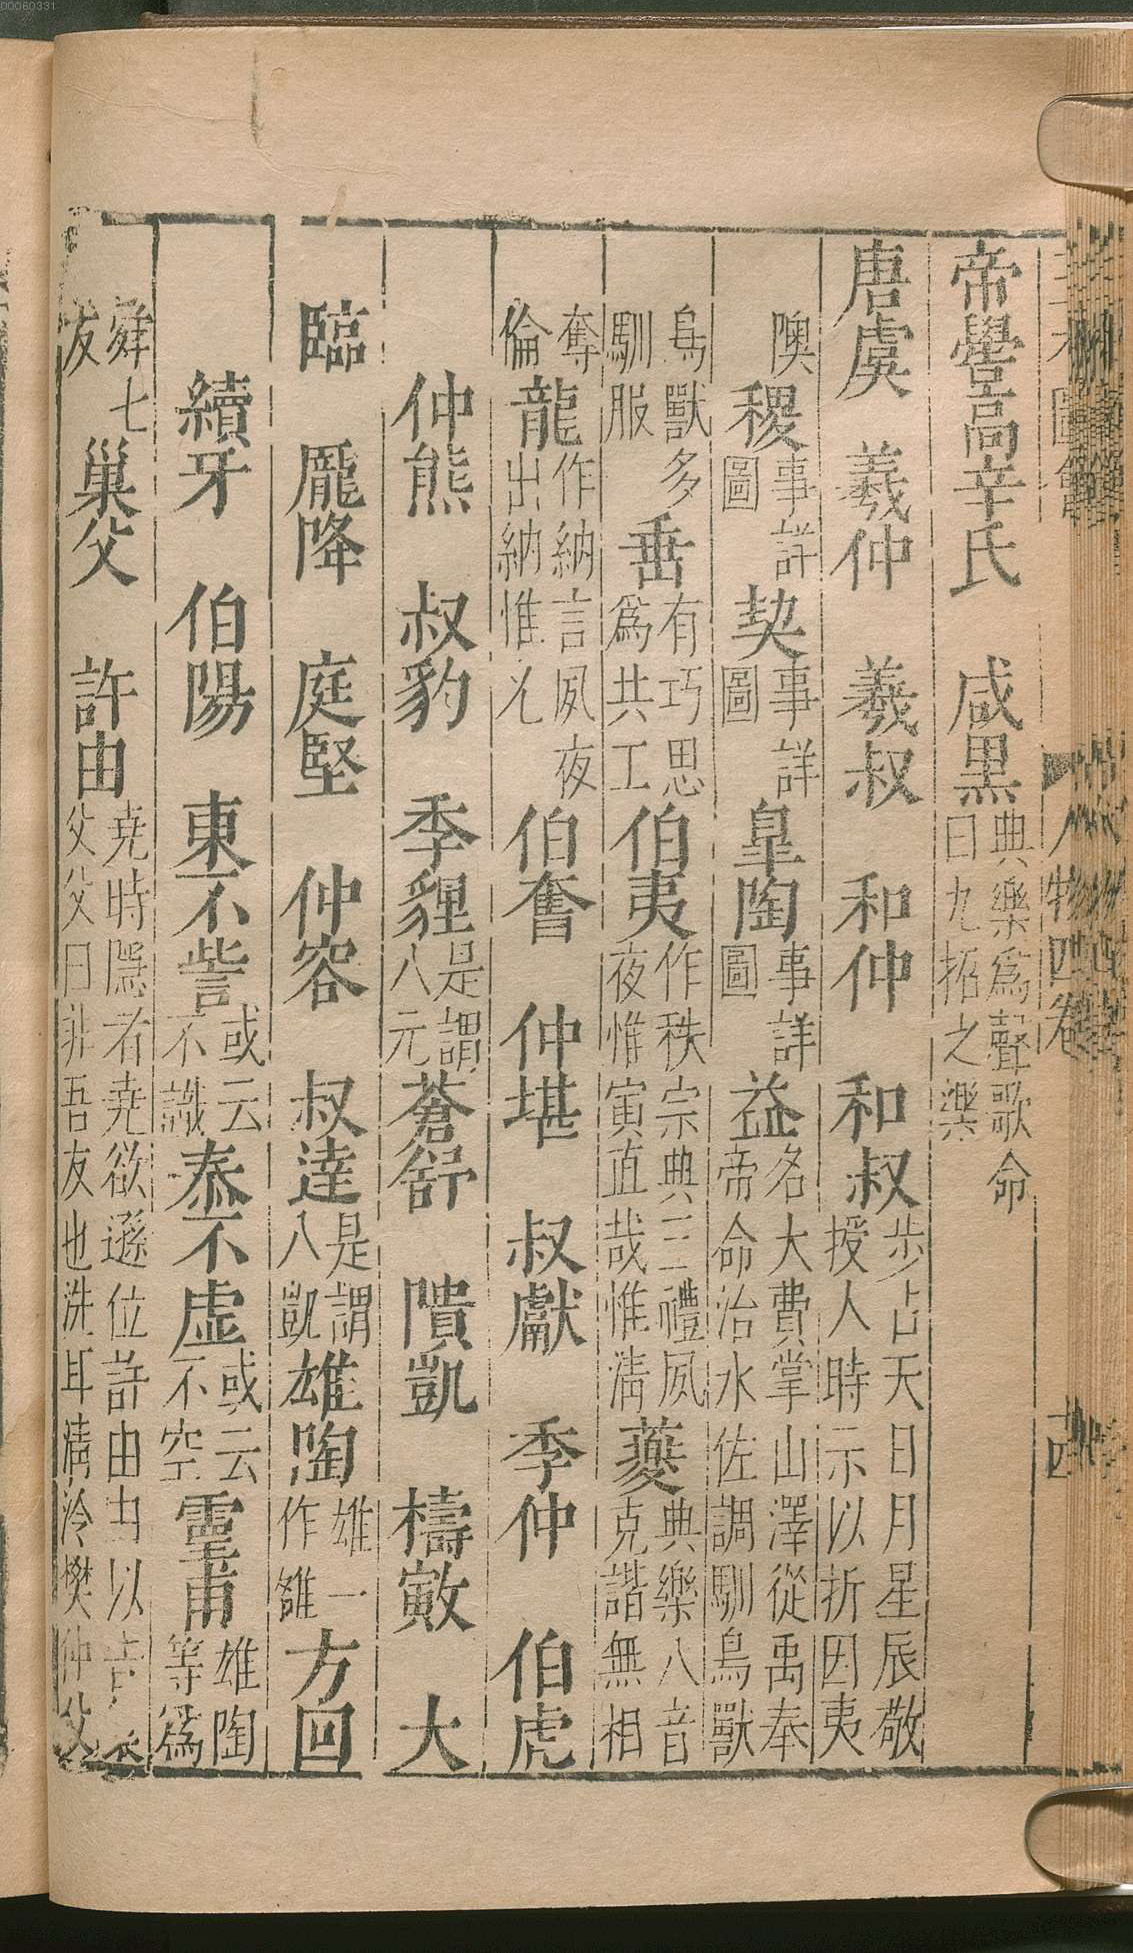 00060331
帝嚳高辛氏　咸黑典樂爲聲歌命曰九招之樂
唐虞　羲仲　羲叔　和仲　和叔步占天日月星辰敬授人時示以折因夷
隩稷事詳圖契事詳圖皐陶事詳圖益名大費掌山澤從禹奉帝命治水佐調馴鳥獸
鳥獸多馴服垂有巧思爲共工伯夷作秩宗典三禮夙夜惟寅直哉惟淸夔典樂八音克諧無相
奪倫龍作納言夙夜出納惟允伯奮　仲堪　叔獻　季仲　伯虎
仲熊　叔豹　季貍是謂八元蒼舒　隤凱　檮戭　大
臨　厖降　庭堅　仲容　叔達是謂八凱雄陶雄一作雒方回
續牙　伯陽　東不訾或云不識秦不虛或云不空靈甫雄陶等爲
舜七友巢父　許由堯時隱者堯欲遜位許由由以告巢父父曰非吾友也洗耳淸泠樊仲父
人物四卷
十四